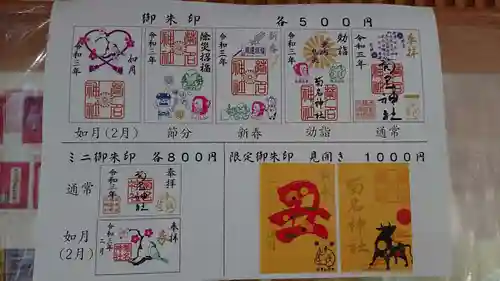 御朱印 各500円
令和三年 如月
令和三年 除災招福
令和三年 新春
令和三年 菊名神社 初詣
奉拝 菊名神社
如月(2月) 節分 新春 初詣 通常
ミニ御朱印 各800円
通常
奉拝 菊名神社 令和三年
如月
(2月)
奉拝 令和三年 二月
限定御朱印 見開き 1000円
丑
菊名神社